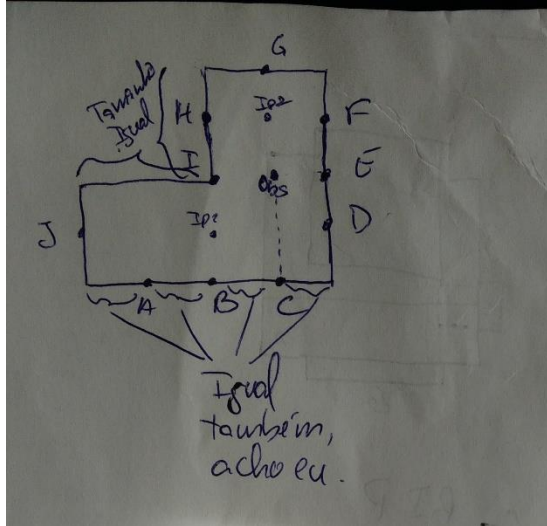 G
Tamanho
Igual
H
Ip2
F
I
Obs
E
J
Ip1
D
A
B
C
Igual
também,
acho eu.